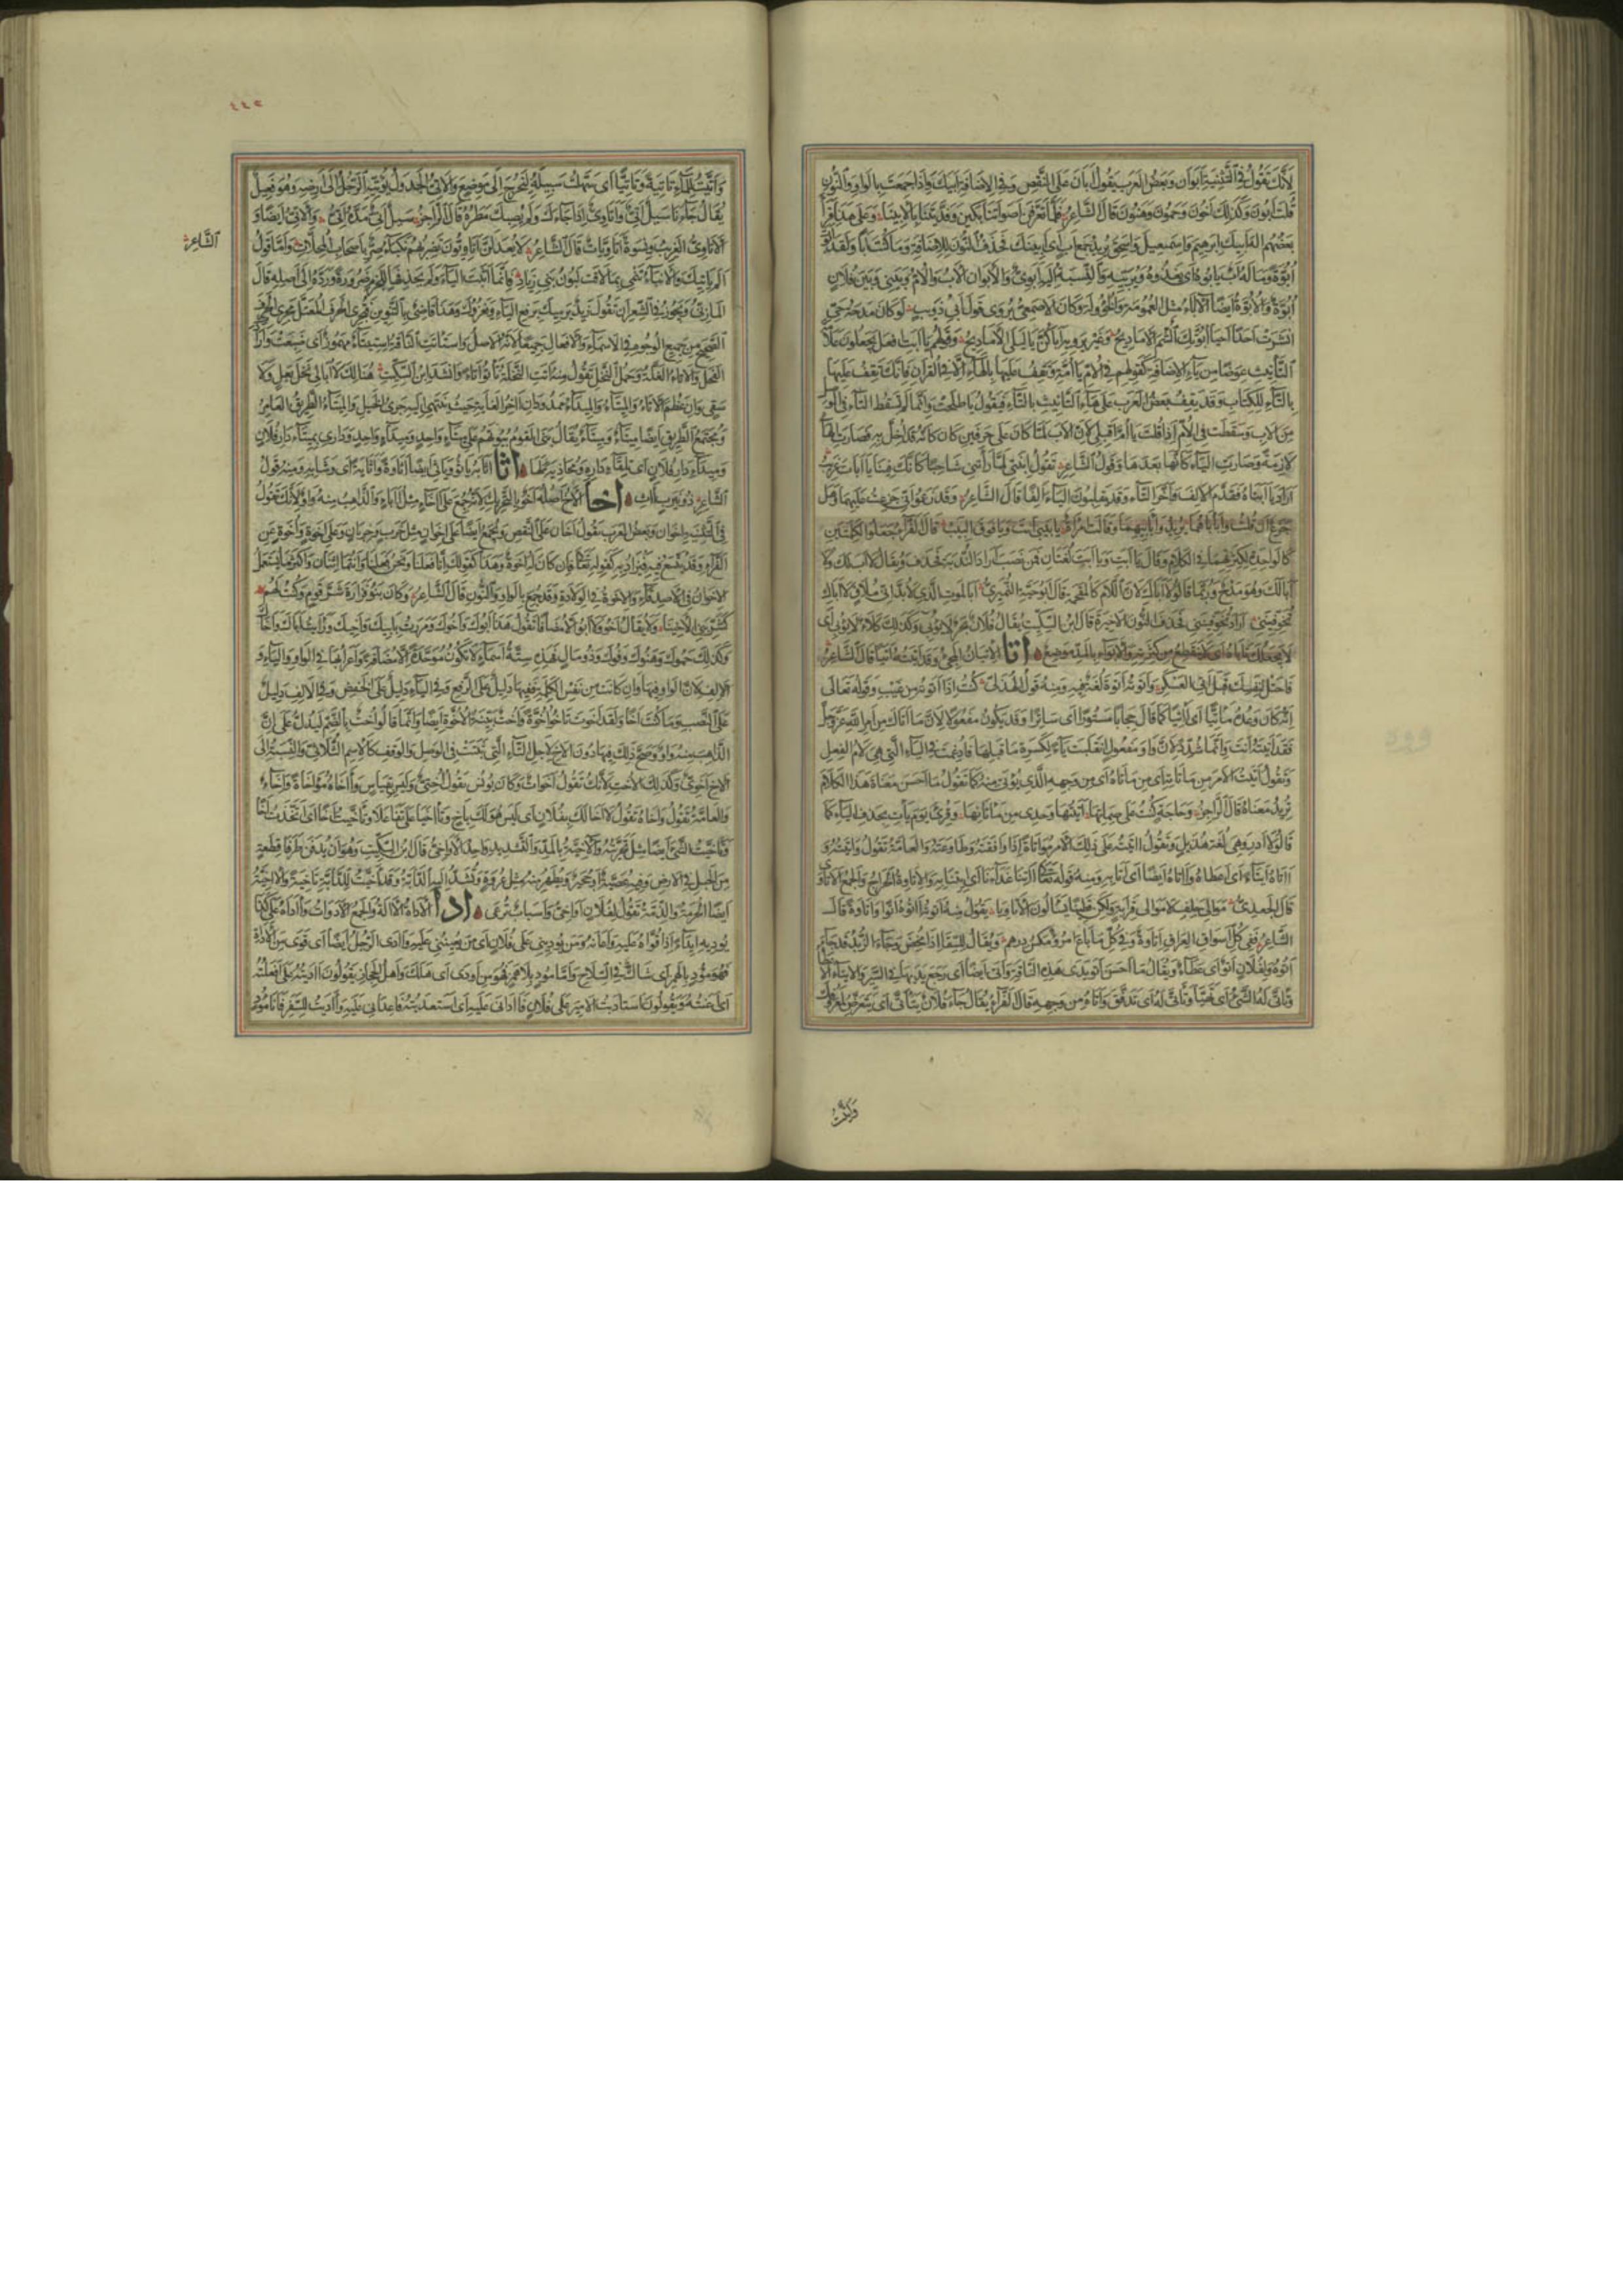 لأنك تقول في التثنية أبوان وبعض العرب يقول أبان على النقص وفي الاضافة أبيك واذا جمعت بالواو والنون
قلت أبون وكذلك أخون وحمون وهنون قال الشاعر فلما تعرفن أصواتنا بكين وفديننا بالأبينا وعلى هذا قرأ
بعضهم اله أبيك ابرهيم واسمعيل واسحق يريد جمع أب أي أبينك فحذف النون للاضافة وما كنت أبا ولقد أبوت
أبوة وماله أب يأبوه أي يغذوه ويربيه والنسبة اليه أبوي والأبوان الأب والأم وبيني وبين فلان
أبوة والأبوة أيضا الآباء مثل العمومة والخؤولة وكان الاصمعي يروي قول أبي ذؤيب لو كان مدحة حي
انشرت أحدا أحيا أبوتك الشم الأماديح وغيره يرويه أباكن يا ليلى الأماديح وقولهم يا أبت افعل يجعلون علامة
التأنيث عوضا من ياء الاضافة كقولهم في الأم يا أمة وتقف عليها بالهاء الا في القرآن فانك تقف عليها
بالتاء للكتاب وقد يقف بعض العرب على هاء التأنيث بالتاء فيقول يا طلحت وانما لم تسقط التاء في الوصل
من الأب وسقطت في الأم اذا قلت يا أم أقبلي لأن الأب لما كان على حرفين كان كأنه قد أخل به فصارت الهاء
لازمة وصارت الياء كأنها بعدها وقول الشاعر تقول ابنتي لما رأتني شاحبا كأنك فينا يا أبات غريب
أراد يا أبتاه فقدم الالف وأخر التاء وقد يقلبون الياء ألفا قال الشاعر وقد زعموا أني جزعت عليهما وهل
جزع ان قلت وا بأباهما يريد وا بأبيهما وقالت امرأة يا بيبي أنت ويا فوق البيب قال الفراء جعلوا الكلمتين
كالواحدة لكثرتهما في الكلام وقال يا أبت ويا أبت لغتان فمن نصب أراد الندبة فحذف ويقال لا أب لك ولا
أبا لك وهو مدح وربما قالوا لا أباك لأن اللام كالمقحمة قال أبو حية النميري أبالموت الذي لا بد أني ملاق لا أباك
تخوفيني أراد تخوفينني فحذف النون الاخيرة قال ابن السكيت يقال فلان بحر لا يؤبى وكذلك كلأ لا يؤبى أي
لا يجعلك تأباه أي لا ينقطع من كثرته والأبواء بالمد موضع أتا الاتيان المجيء وقد أتيته أتيا قال الشاعر
فاحتل لنفسك قبل أتي العسكر وأتوته أتوة لغة فيه ومنه قول الهذلي كنت اذا أتوته من غيب وقوله تعالى
انه كان وعده مأتيا أي آتيا كما قال حجابا مستورا أي ساترا وقد يكون مفعولا لأن ما أتاك من أمر الله عز وجل
فقد أتيته أنت وانما شدد لأن واو مفعول انقلبت ياء لكسرة ما قبلها فأدغمت في الياء التي هي لام الفعل
وتقول أتيت الأمر من مأتاته أي من مأتاه أي من وجهه الذي يؤتى منه كما تقول ما أحسن معناة هذا الكلام
تريد معناه قال الراجز وحاجة كنت على صماتها أتيتها وحدي من مأتاتها وقرئ يوم يأت بحذف الياء كما
قالوا لا أدر وهي لغة هذيل وتقول آتيته على ذلك الأمر مؤاتاة اذا وافقته وطاوعته والعامة تقول واتيته و
آتاه ايتاء أي أعطاه وآتاه أيضا أي أتى به ومنه قوله تعالى آتنا غداءنا أي ائتنا به والاتاوة الخراج والجمع الأتاوى
قال الجعدي موالي حلف لا موالي قرابة ولكن قطينا يسألون الأتاويا تقول منه أتوته آتوه أتوا واتاوة قال
الشاعر ففي كل أسواق العراق اتاوة وفي كل ما باع امرؤ مكس درهم ويقال للسقاء اذا مخض وجاء الزبد قد جاء
أتوه ولفلان أتو أي عطاء ويقال ما أحسن أتو يدي هذه الناقة وأتي أيضا أي رجع يديها في السير
وتأتى له الشيء أي تهيأ وتأتى له أي ترفق وأتاه من وجهه قال الفراء يقال جاء فلان يتأتى أي يتعرض لمعروفك
وأتيت
٤٤٥
وأتيت للماء تأتية وتأتيا أي سهلت سبيله ليخرج الى موضع والأتي الجدول يؤتيه الرجل الى أرضه وهو فعيل
يقال جاءنا سيل أتي وأتاوي اذا جاءك ولم يصبك مطره قال الراجز سيل أتي مده أتي والأتي أيضا و
الأتاوي الغريب ونسوة أتاويات قال الشاعر لا يعدلن أتاويون تضربهم نكباء صر بأصحاب المحلات وأما قول
الشاعر
ألم يأتيك والأنباء تنمي بما لاقت لبون بني زياد فانما أثبت الياء ولم يحذفها للجزم ضرورة ورده الى أصله قال
المازني ويجوز في الشعر أن تقول زيد يرميك برفع الياء ويغزوك وهذا قاضي بالتنوين فتجري الحرف المعتل مجرى الحرف
الصحيح من جميع الوجوه في الاسماء والافعال جميعا لأنه الأصل واستأتت الناقة استيتاء مهموز أي ضبعت وأرادت
الفحل والأتاء الغلة وحمل النخل تقول منه أتت النخلة تأتو أتاء وانشد ابن السكيت هنالك لا أبالي نخل بعل ولا
سقي وان عظم الأتاء والميتاء والميداء ممدودان آخر الغاية حيث ينتهي اليه جري الخيل والميتاء الطريق العامر
ومجتمع الطريق أيضا ميتاء وميداء يقال بنى القوم بيوتهم على ميتاء واحد وميداء واحد وداري بميتاء دار فلان
وميداء دار فلان أي تلقاء داره ومحاذية لها أثا أثا به يأثو ويأثي أيضا أثاوة وأثاية أي وشى به ومنه قول
الشاعر ذو نيرب آث أخا الأخ أصله أخو بالتحريك لأنه جمع على آخاء مثل آباء والذاهب منه واو لأنك تقول
في التثنية أخوان وبعض العرب يقول أخان على النقص ويجمع أيضا على اخوان مثل خرب وخربان وعلى اخوة وأخوة عن
الفراء وقد يتسع فيه فيراد به كقوله تعالى فان كان له اخوة وهذا كقولك انا فعلنا ونحن فعلنا وانتما اثنان وأكثر ما يستعمل
الاخوان في الأصدقاء والاخوة في الولادة وقد جمع بالواو والنون قال الشاعر وكان بنو فزارة شر قوم وكنت لهم
كشر بني الأخينا ولا يقال أخو ولا أبو الا مضافا تقول هذا أبوك وأخوك ومررت بأبيك وأخيك ورأيت أباك وأخاك
وكذلك حموك وهنوك وفوك وذو مال فهذه ستة أسماء لا تكون موحدة الا مضافة واعرابها في الواو والياء و
الالف لأن الواو فيها وان كانت من نفس الكلمة ففيها دليل على الرفع وفي الياء دليل على الخفض وفي الالف دليل
على النصب وما كنت أخا ولقد أخوت تأخو أخوة وأخت بينة الأخوة أيضا وانما قالوا أخت بالضم ليدل على أن
الذاهب منه واو وصح ذلك فيها دون الأخ لأجل التاء التي تثبت في الوصل والوقف كالاسم الثلاثي والنسبة الى
الأخ أخوي وكذلك الى الأخت لأنك تقول أخوات وكان يونس يقول أختي وليس بقياس وآخاه مؤاخاة واخاء
والعامة تقول واخاه وتقول لا أخا لك بفلان أي ليس هو لك بأخ وتآخيا على تفاعلا وتأخيت أخا أي اتخذت أخا
وتأخيت الشيء أيضا مثل تحريته والآخية بالمد والتشديد واحد الأواخي قال ابن السكيت وهو أن يدفن طرفا قطعة
من الحبل في الأرض وفيه عصية أو حجير ويظهر منه مثل عروة وتشد اليه الدابة وقد أخيت للدابة تأخية والآخية
أيضا الحرمة والذمة تقول لفلان أواخي وأسباب ترعى أدا الأداة الآلة والجمع الأدوات وآداه على كذا
يؤديه ايداء اذا قواه عليه وأعانه ومن يؤديني على فلان أي من يعينني عليه وآدى الرجل أيضا أي قوي من الأداة
فهو مؤد بالهمز أي شاك في السلاح وأما مود بلا همز فهو من أودى أي هلك وأهل الحجاز يقولون آديته على أفعلته
أي أعنته ويقولون استأديت الأمير على فلان فآداني عليه أي استعديته فأعداني عليه وآديت للسفر فأنا مؤد